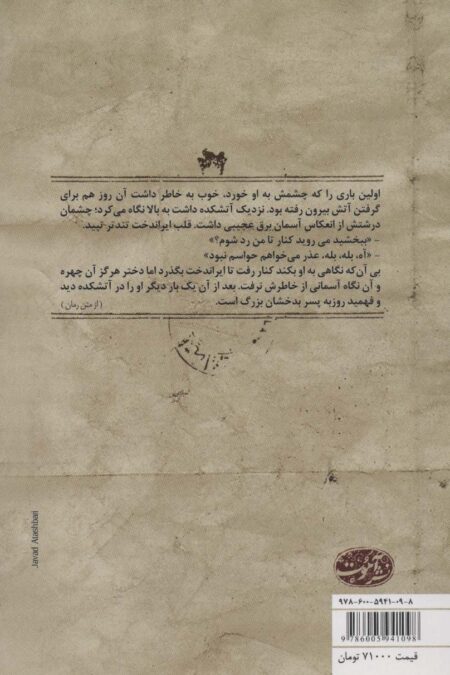 اولین باری را که چشمش به او خورد، خوب به خاطر داشت آن روز هم برای
گرفتن آتش بیرون رفته بود. نزدیک آتشکده داشت به بالا نگاه می‌کرد؛ چشمان
درشتش از انعکاس آسمان برق عجیبی داشت. قلب ایراندخت تندتر تپید.
- «ببخشید می روید کنار تا من رد شوم؟»
- «آه، بله، بله، عذر می‌خواهم حواسم نبود»
بی آن که نگاهی به او بکند کنار رفت تا ایراندخت بگذرد اما دختر هرگز آن چهره
و آن نگاه آسمانی از خاطرش نرفت. بعد از آن یک بار دیگر او را در آتشکده دید
و فهمید روزبه پسر بدخشان بزرگ است.
(از متن رمان)
Javad Atashbari
۹۷۸-۶۰۰-۵۹۴۱-۰۹-۸
9 786005 941098
قیمت ۷۱۰۰۰ تومان